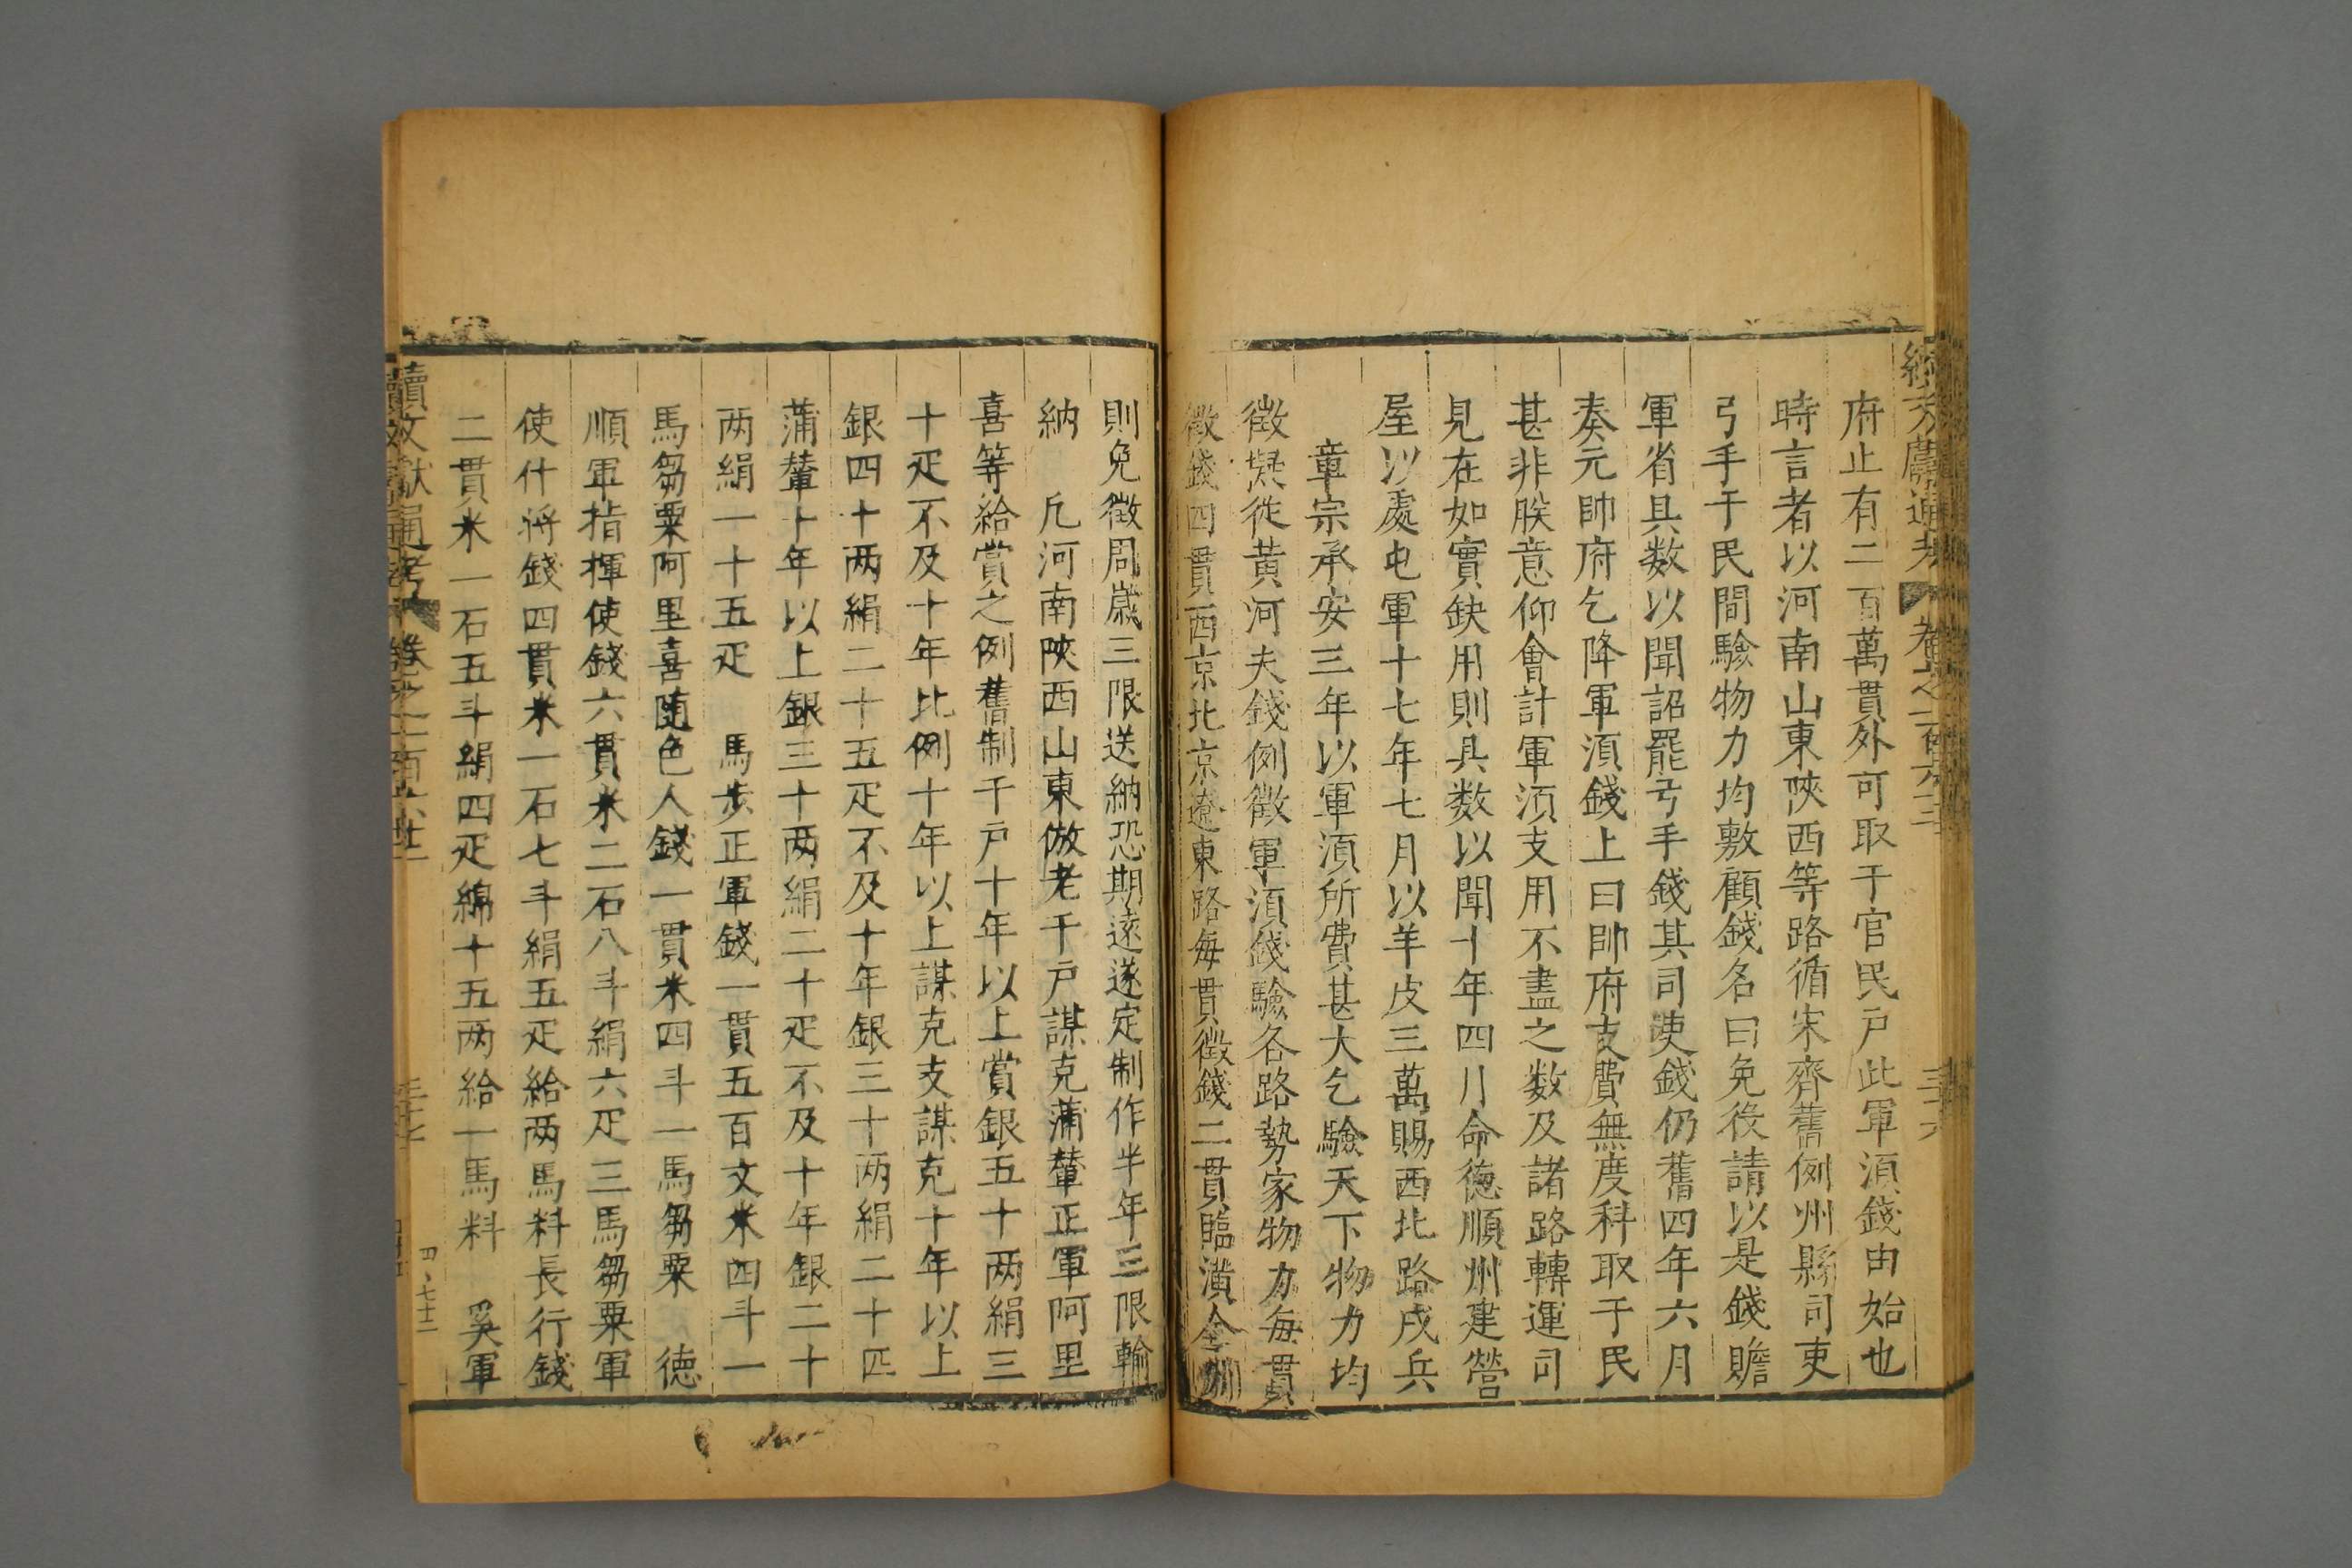 府止有二百萬貫外可取于官民戸此軍湏錢由始也
時言者以河南山東陜西等路循宋齊舊例州縣司吏
弓手于民間驗物力均敷顧錢名曰免役請以是錢贍
軍省具数以聞詔罷弓手錢其司吏錢仍舊四年六月
奏元帥府乞降軍湏錢上曰帥府支費無度科取于民
甚非朕意仰會計軍湏支用不盡之数及諸路轉運司
見在如實缺用則具数以聞十年四月命德順州建營
屋以處屯軍十七年七月以羊皮三萬賜西北路戍兵
章宗承安三年以軍湏所費甚大乞驗天下物力均
徵擬徙黄河夫錢例徵軍湏錢驗各路勢家物力每貫
徵錢四貫西京北京遼東路每貫徵錢二貫臨潢全州
則免徵周歳三限送納恐期遠遂定制作半年三限輸
納 凡河南陜西山東倣老千戸謀克蒲輦正軍阿里
喜等給賞之例舊制千戸十年以上賞銀五十两絹三
十疋不及十年比例十年以上謀克支謀克十年以上
銀四十两絹二十五疋不及十年銀三十两絹二十匹
蒲輦十年以上銀三十两絹二十疋不及十年銀二十
两絹一十五疋 馬步正軍錢一貫五百文米四斗一
馬芻粟阿里喜随色人錢一貫米四斗一馬芻粟 德
順軍指揮使錢六貫米二石八斗絹六疋三馬芻粟軍
使什将錢四貫米一石七斗絹五疋給两馬料長行錢
二貫米一石五斗絹四疋綿十五两給一馬料 奚軍
續文献通考 卷之一百六十二
四、七十二